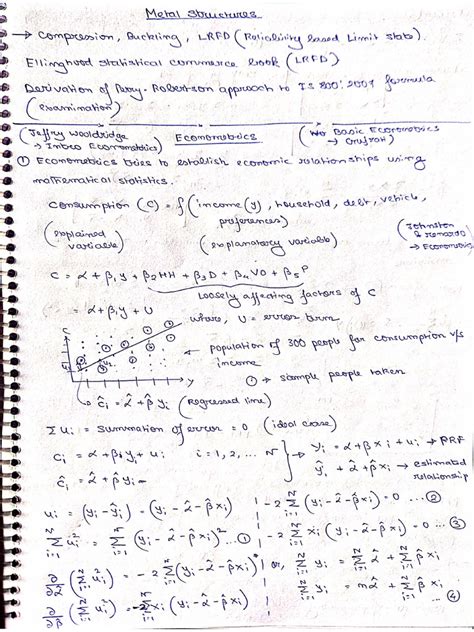 Metal Structures
→ Compression, Buckling, LRFD (Reliability based Limit stab).
Ellinghood statistical commerce book (LRFD)
Derivation of Perry-Robertson approach to IS 800:2007 formula
(examination)
(Jeffry Wooldridge
→ Intro Econometrics)
Econometrics
Basic Econometrics
→ Gujrati)
① Econometrics tries to establish economic relationships using
mathematical statistics.
Consumption (C) = f (income(y), household, debt, vehicle,
preferences)
(explained
variable)
(explanatory variable)
(Johnston
→ Econometrics
C = α + β₁y + β₂HH + β₃D + β₄VO + β₅P
loosely affecting factors of C
= α + β₁y + U
where, U = error term
population of 300 people for consumption v/s
income
① → sample people taken
ĉᵢ = α̂ + β̂yᵢ (Regressed line)
Σuᵢ = summation of error = 0 (ideal case)
Cᵢ = α + β₁yᵢ + uᵢ i = 1, 2, ... N
ĉᵢ = α̂ + β̂yᵢ
yᵢ = α + βxᵢ + uᵢ → PRF
ŷᵢ = α̂ + β̂xᵢ → estimated
relationship
uᵢ = (yᵢ - ŷᵢ) = (yᵢ - α̂ - β̂xᵢ)
= (yᵢ - α̂ - β̂xᵢ)² ...①
(yᵢ - α̂ - β̂xᵢ) = 0 ...②
xᵢ (yᵢ - α̂ - β̂xᵢ) = 0 ...③
(yᵢ - α̂ - β̂xᵢ)
or,
xᵢ (yᵢ - α̂ - β̂xᵢ)
...④